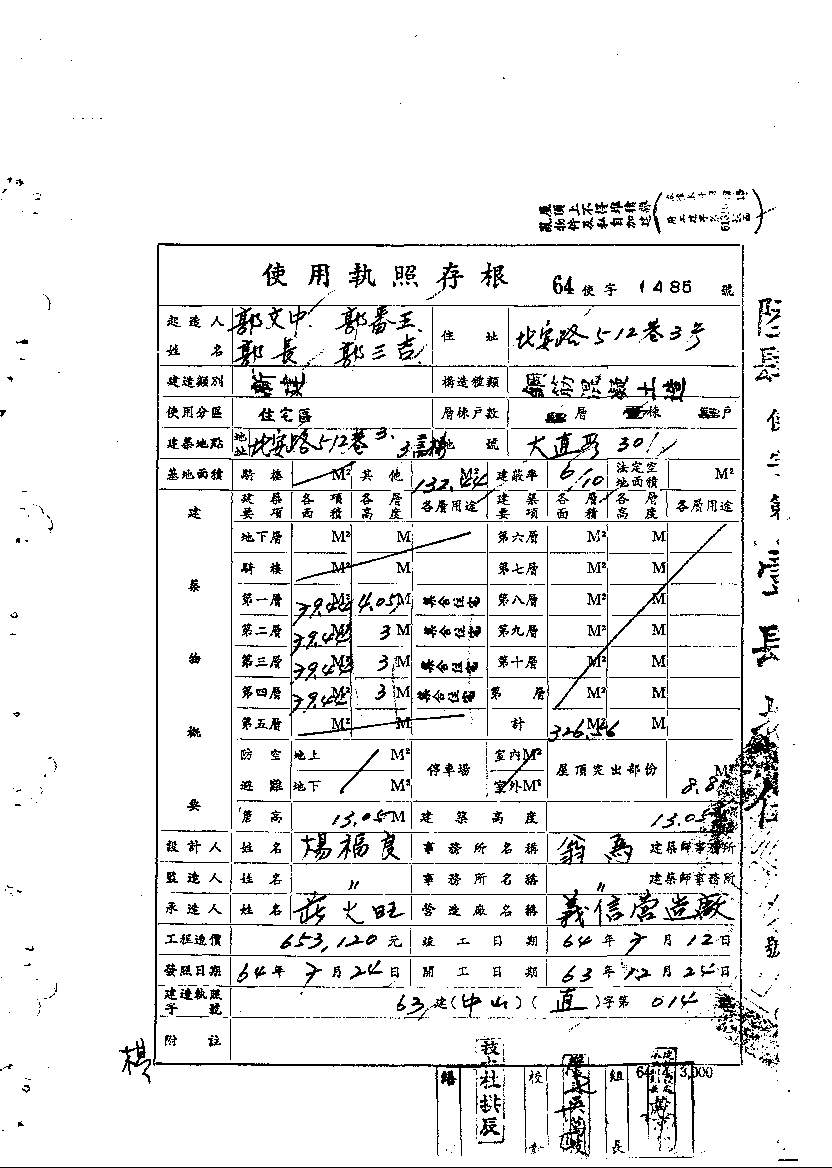 屋頂上不得堆積雜
物件及私自加建
使用執照存根 64使字1485號
起造人姓名 郭文中 郭番王 郭長 郭三吉 住址 北安路512巷3号
建造類別 新建 構造種類 鋼筋混凝土造
使用分區 住宅區 層棟戶數 層 棟 戶
建築地點 地址 北安路512巷3. 地號 大直段301
基地面積 騎樓 M² 其他 132.44 M² 建蔽率 6/10 法定空地面積 M²
建築物概要
建築要項 各項面積 各層高度 各層用途 建築要項 各層面積 各層高度 各層用途
地下層 M² M 第六層 M² M
騎樓 M² M 第七層 M² M
第一層 79.44 M² 4.05 M 集合住宅 第八層 M² M
第二層 79.44 M² 3 M 集合住宅 第九層 M² M
第三層 79.44 M² 3 M 集合住宅 第十層 M² M
第四層 79.44 M² 3 M 集合住宅 第 層 M² M
第五層 M² M 計 326.56 M² M
防空避難 地上 M² 停車場 室內M² 屋頂突出部份 8.8 M²
地下 M² 室外M²
簷高 13.05 M 建築高度 13.05
設計人 姓名 楊福良 事務所名稱 建築師事務所
監造人 姓名 〃 事務所名稱 〃 建築師事務所
承造人 姓名 營造廠名稱 義信營造廠
工程造價 653,120元 竣工日期 64年7月12日
發照日期 64年7月24日 開工日期 63年12月24日
建造執照字號 63建(中山)(直)字第014號
附註
64 3,000
校
組長